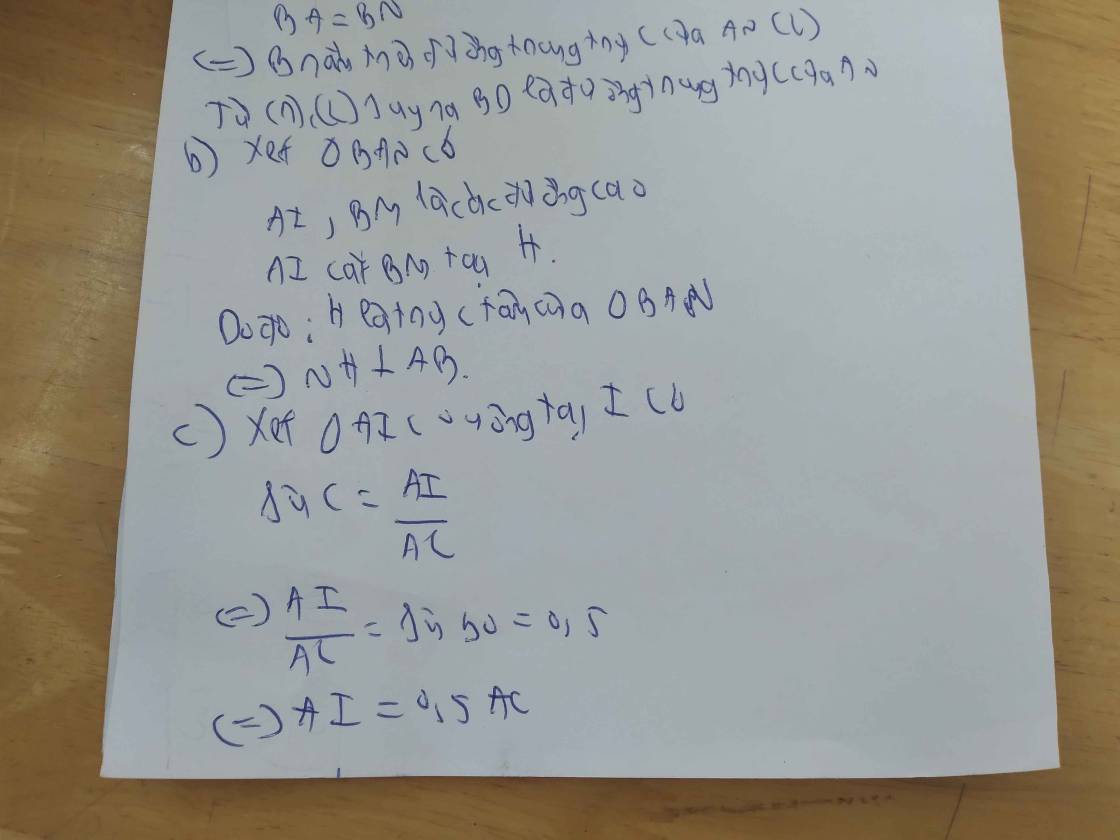 BA = BN
(=) B nằm trên đường trung trực của AN (2)
Từ (1), (2) suy ra BD là đường trung trực của AN
b) Xét Δ BAN có
AI, BM là các đường cao
AI cắt BM tại H.
Do đó: H là trực tâm của Δ BAN
(=) NH ⊥ AB.
c) Xét Δ AIC vuông tại I có
sin C = AI/AC
(=) AI/AC = sin 30 = 0,5
(=) AI = 0,5 AC